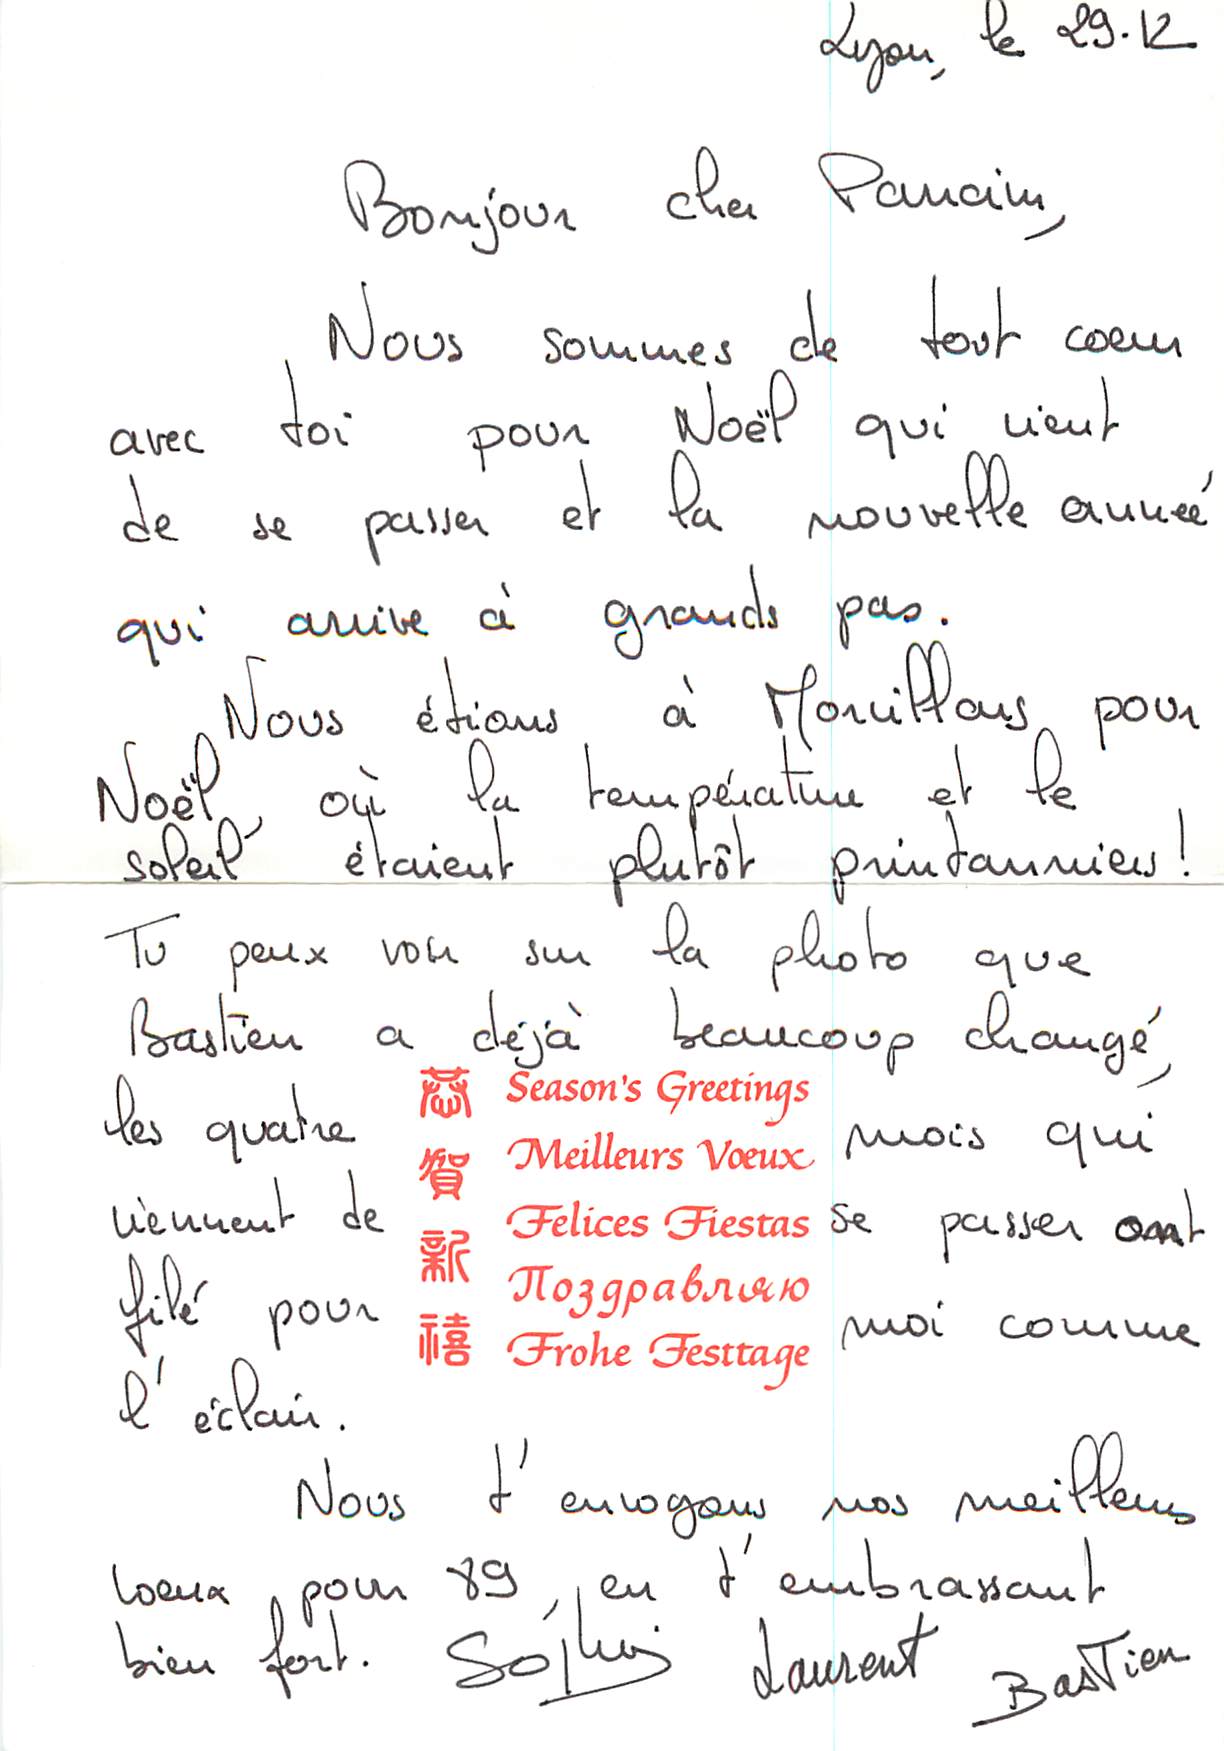 Lyon, le 29.12
Bonjour cher Parrain,
Nous sommes de tout coeur
avec toi pour Noël qui vient
de se passer et la nouvelle année
qui arrive à grands pas.
Nous étions à Morvillars pour
Noël, où la température et le
soleil étaient plutôt printanniers!
Tu peux voir sur la photo que
Bastien a déjà beaucoup changé,
les quatre mois qui
viennent de se passer ont
filé pour moi comme
l'éclair.
恭賀新禧
Season's Greetings
Meilleurs Vœux
Felices Fiestas
Поздравляю
Frohe Festtage
Nous t'envoyons nos meilleurs
voeux pour 89, en t'embrassant
bien fort. Laurent Bastien